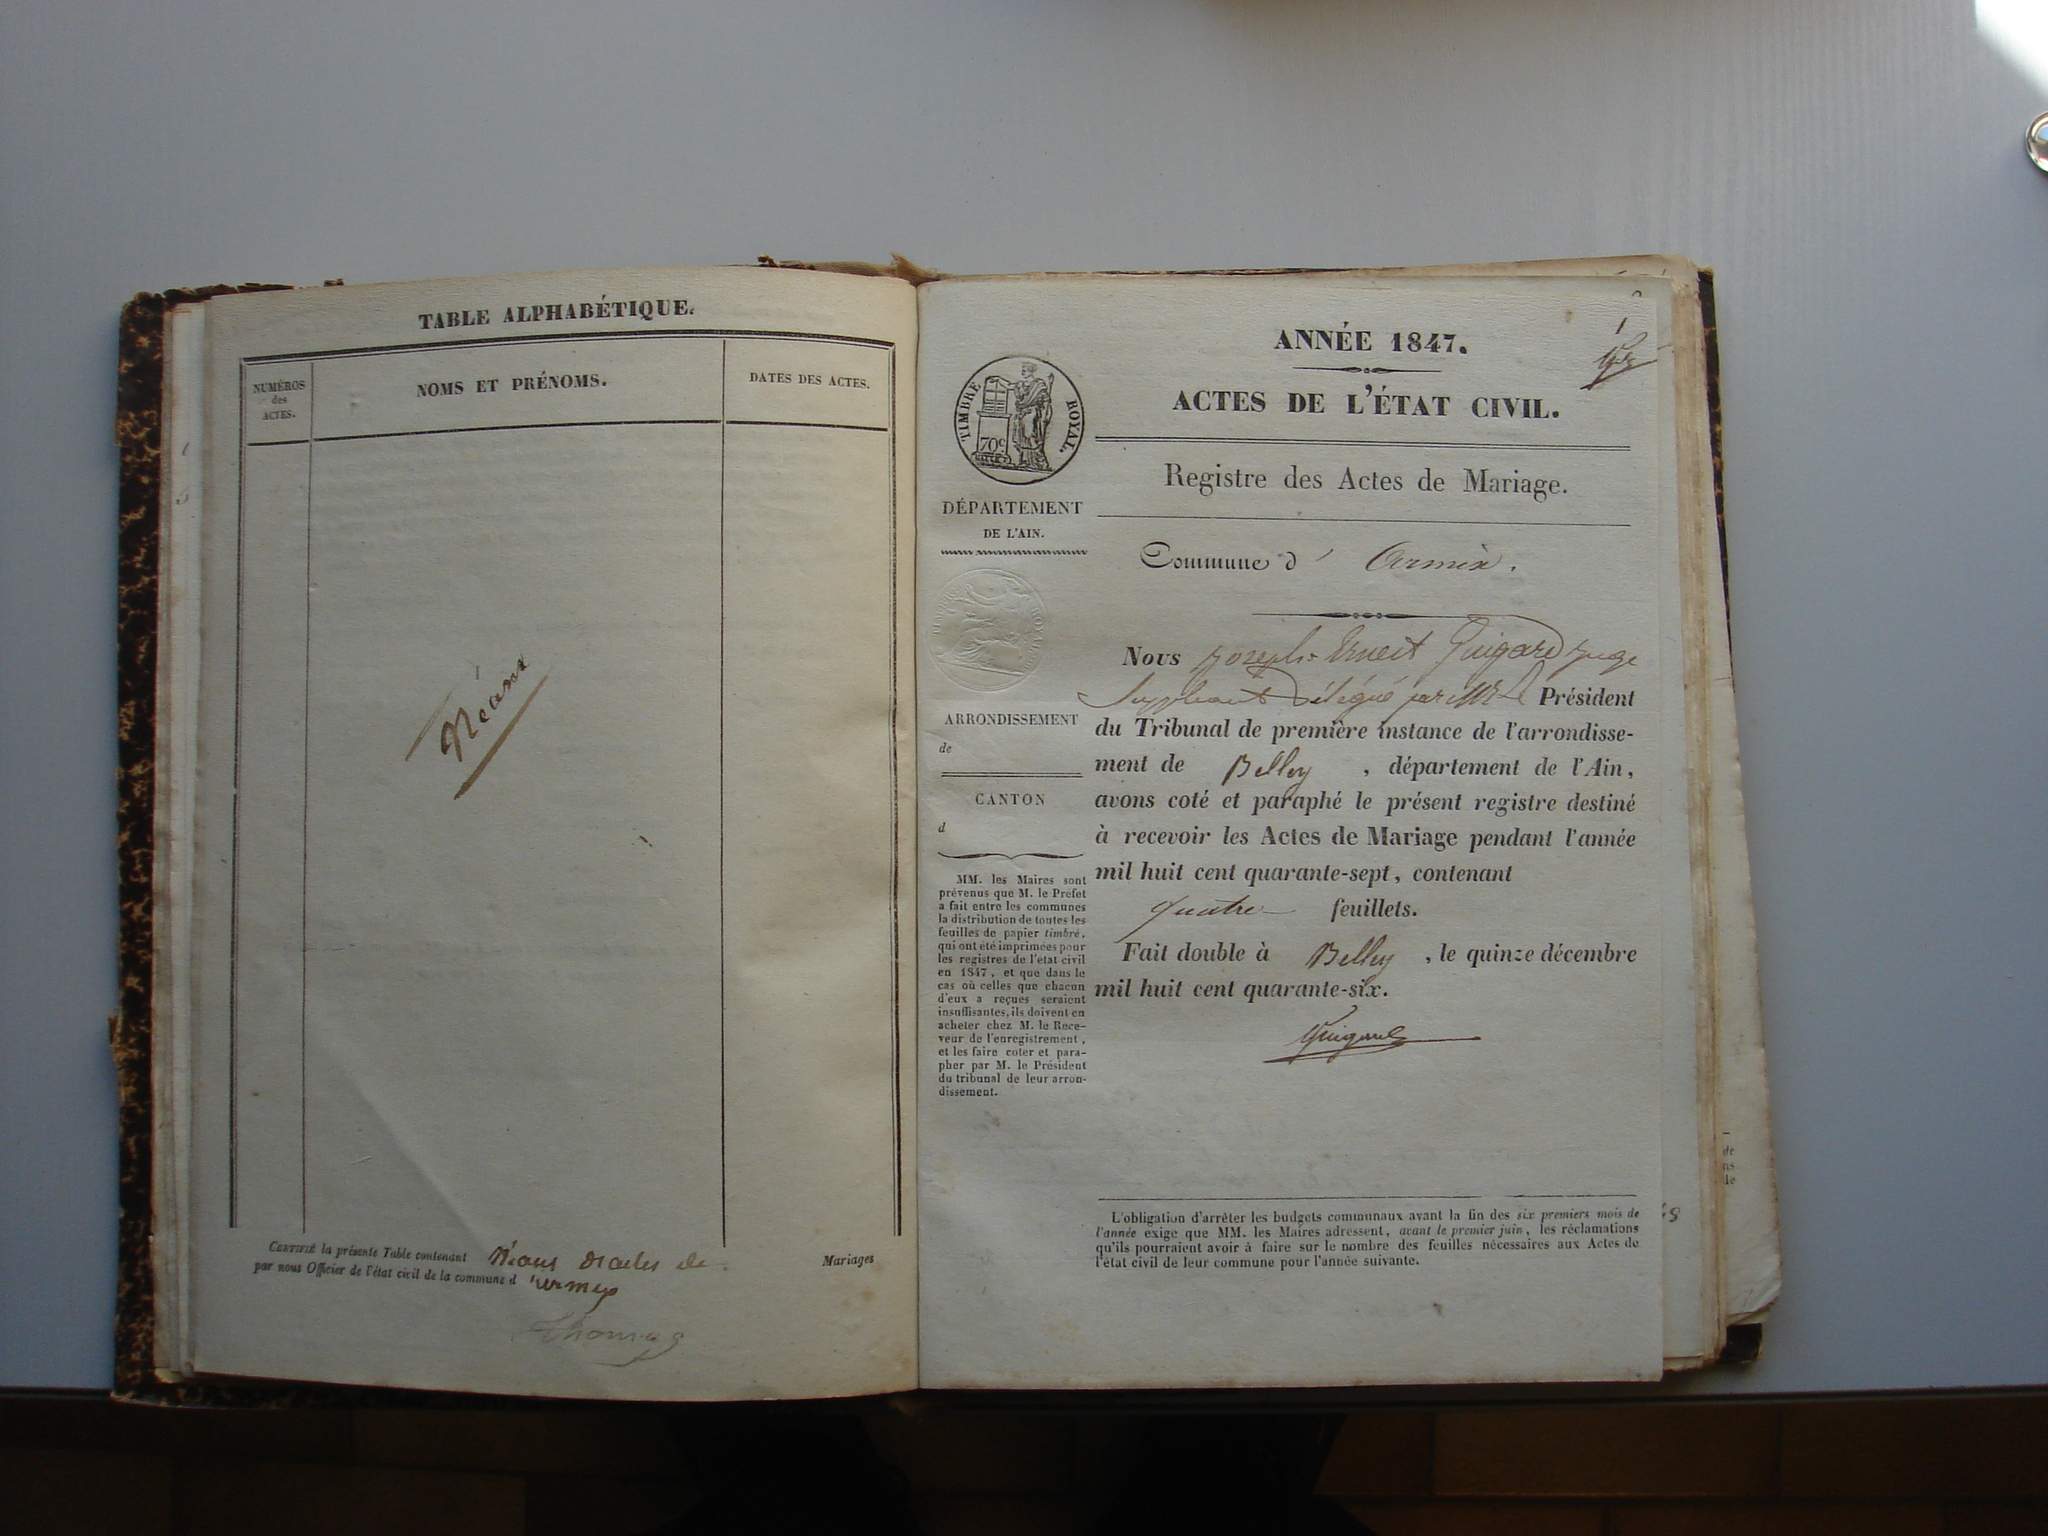 TABLE ALPHABÉTIQUE.
NUMÉROS
des
ACTES.
NOMS ET PRÉNOMS.
DATES DES ACTES.
Néant
CERTIFIÉ la présente Table contenant Néant d'actes de Mariages
par nous Officier de l'état civil de la commune d'armix
Thomas
1
ANNÉE 1847.
ACTES DE L'ÉTAT CIVIL.
TIMBRE ROYAL.
70c
DÉPARTEMENT
DE L'AIN.
Registre des Actes de Mariage.
Commune d' Armix.
Nous Joseph Ernest Guigard Juge
Suppléant Délégué par Mr le Président
du Tribunal de première instance de l'arrondisse-
ment de Belley, département de l'Ain,
avons coté et paraphé le présent registre destiné
à recevoir les Actes de Mariage pendant l'année
mil huit cent quarante-sept, contenant
quatre feuillets.
Fait double à Belley, le quinze décembre
mil huit cent quarante-six.
Guigard
ARRONDISSEMENT
de
CANTON
d
MM. les Maires sont
prévenus que M. le Préfet
a fait entre les communes
la distribution de toutes les
feuilles de papier timbré,
qui ont été imprimées pour
les registres de l'état civil
en 1847, et que dans le
cas où celles que chacun
d'eux a reçues seraient
insuffisantes, ils doivent en
acheter chez M. le Rece-
veur de l'enregistrement,
et les faire coter et para-
pher par M. le Président
du tribunal de leur arron-
dissement.
L'obligation d'arrêter les budgets communaux avant la fin des six premiers mois de
l'année exige que MM. les Maires adressent, avant le premier juin, les réclamations
qu'ils pourraient avoir à faire sur le nombre des feuilles nécessaires aux Actes de
l'état civil de leur commune pour l'année suivante.